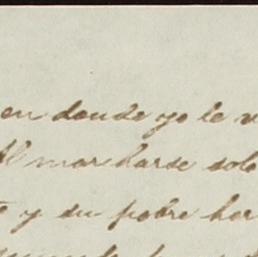 en donde yo le v
Al marcharse solo
y su pobre her